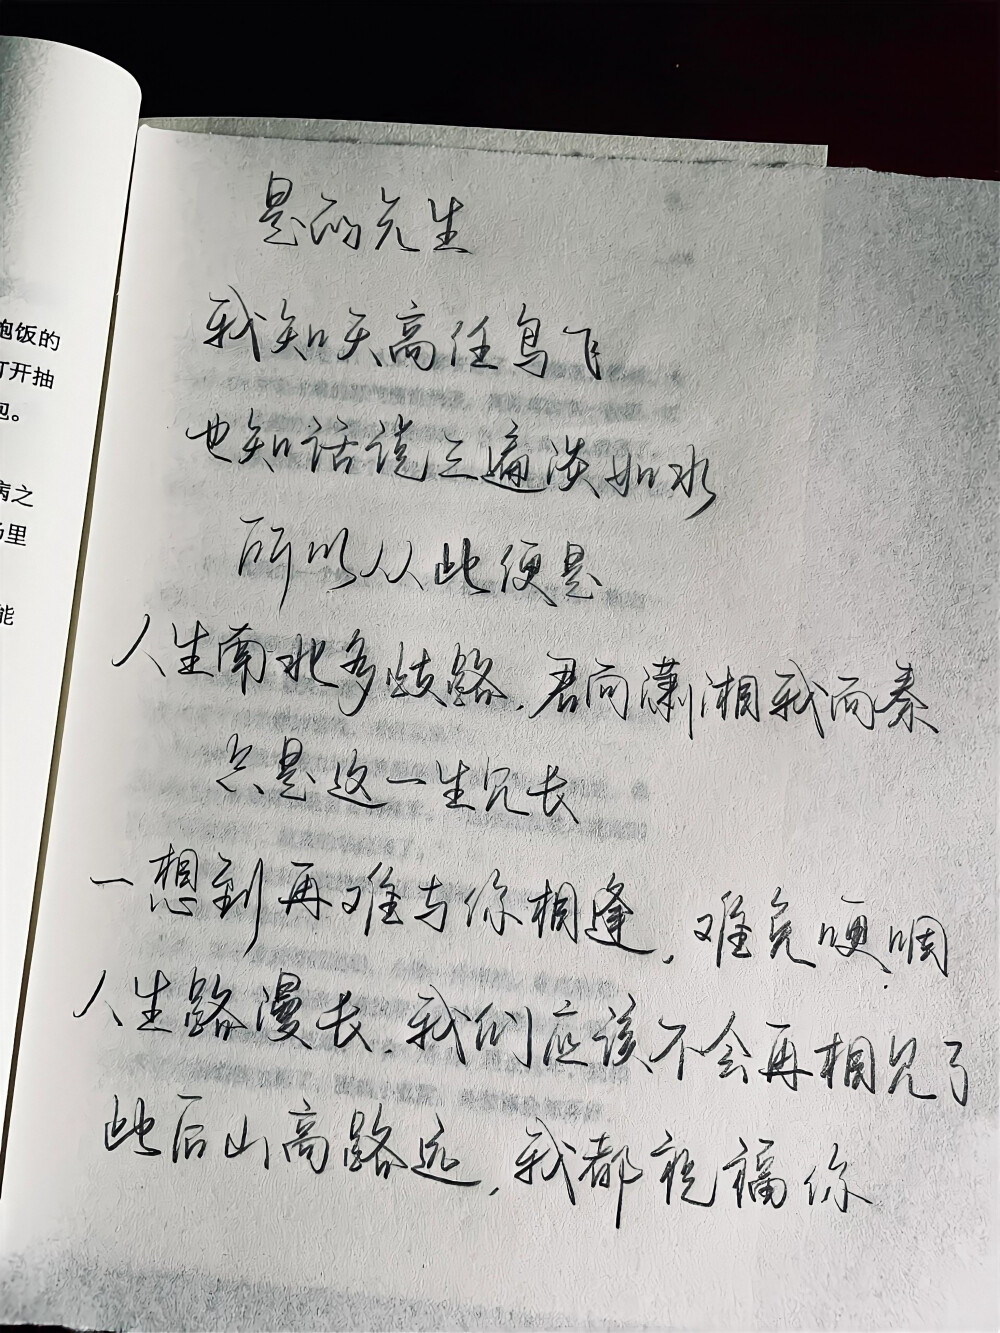 饭的
打开抽
包。
病之
场里
能
是的先生
我知天高任鸟飞
也知话说三遍淡如水
所以从此便是
人生南北多歧路，君向潇湘我向秦
只是这一生冗长
一想到再难与你相逢，难免哽咽
人生路漫长，我们应该不会再相见了
此后山高路远，我都祝福你